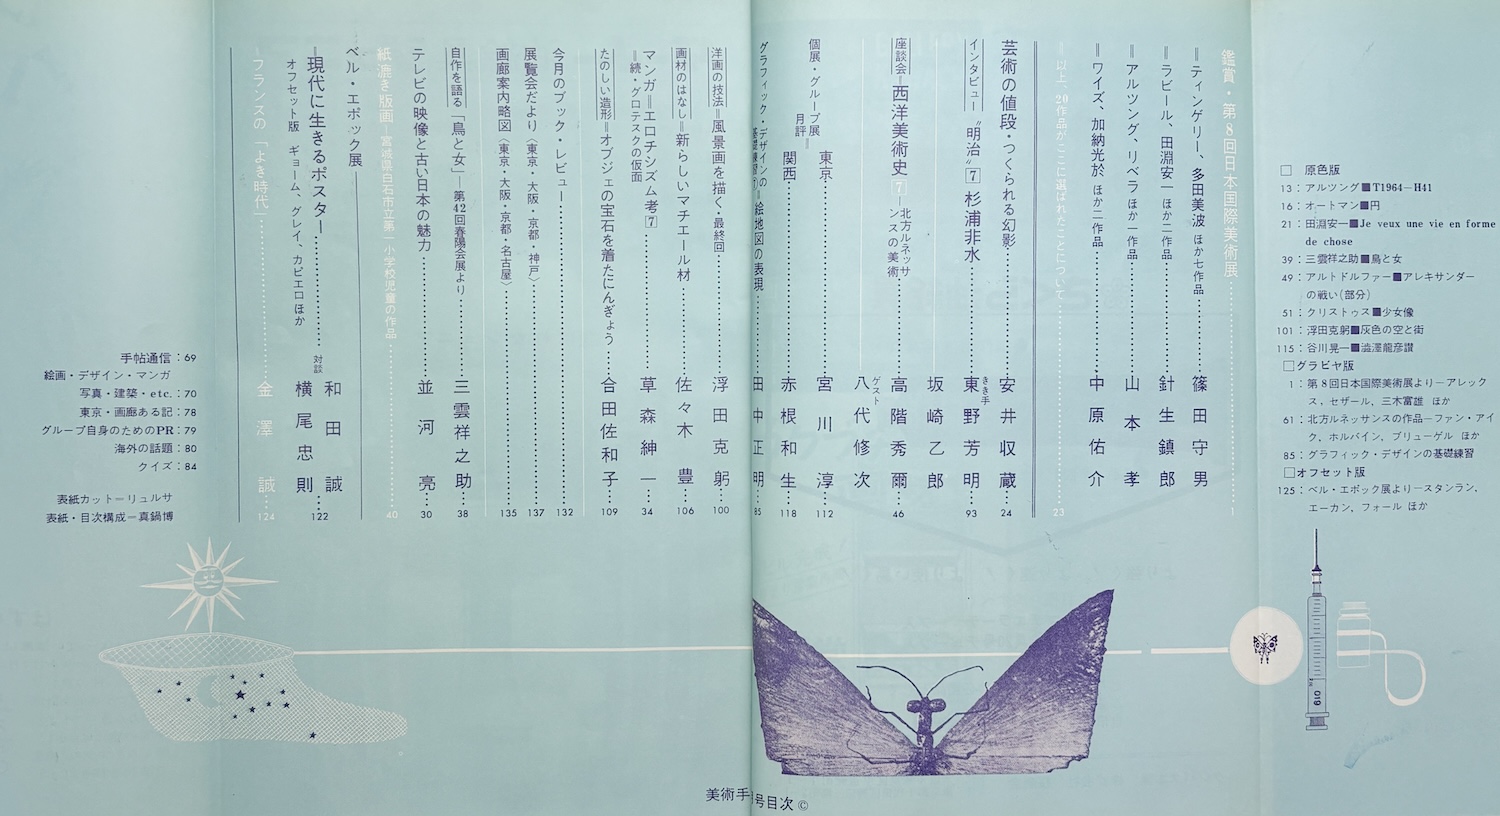 鑑賞・第8回日本国際美術展……1
=ティンゲリー、多田美波 ほか七作品……篠田守男
=ラビール、田淵安一 ほか二作品……針生鎮郎
=アルツング、リベラ ほか一作品……山本孝
=ワイズ、加納光於 ほか二作品……中原佑介
=以上、20作品がここに選ばれたことについて……23
芸術の値段・つくられる幻影……安井収蔵……24
インタビュー“明治”7 杉浦非水……きき手 東野芳明……93
座談会=西洋美術史 7―北方ルネッサンスの美術……高階秀爾……46
坂崎乙郎
ゲスト 八代修次
個展・グループ展月評=東京……宮川淳……112
関西……赤根和生……118
グラフィック・デザインの基礎練習(7)=絵地図の表現……田中正明……85
洋画の技法=風景画を描く・最終回……浮田克躬……100
画材のはなし=新らしいマチエール材……佐々木豊……106
マンガ=エロチシズム考7……草森紳一……34
=続・グロテスクの仮面
たのしい造形=オブジェの宝石を着たにんぎょう……合田佐和子……109
今月のブック・レビュー……132
展覧会だより〈東京・大阪・京都・神戸〉……137
画廊案内略図〈東京・大阪・京都・名古屋〉……135
自作を語る「鳥と女」―第42回春陽会展より……三雲祥之助……38
テレビの映像と古い日本の魅力……並河亮……30
紙漉き版画―宮城県白石市立第一小学校児童の作品……40
ベル・エポック展
=現代に生きるポスター……対談 和田誠
横尾忠則……122
オフセット版 ギョーム、グレイ、カピエロ ほか
=フランスの「よき時代」……金澤誠……124
□ 原色版
13：アルツング■T1964―H41
16：オートマン■円
21：田淵安一■Je veux une vie en forme
de chose
39：三雲祥之助■鳥と女
49：アルトドルファー■アレキサンダー
の戦い（部分）
51：クリストゥス■少女像
101：浮田克躬■灰色の空と街
115：谷川晃一■澁澤龍彦讃
□グラビヤ版
1：第8回日本国際美術展より―アレック
ス，セザール，三木富雄 ほか
61：北方ルネッサンスの作品―ファン・アイ
ク，ホルバイン，ブリューゲル ほか
85：グラフィック・デザインの基礎練習
□オフセット版
125：ベル・エポック展より―スタンラン，
エーカン，フォール ほか
手帖通信：69
絵画・デザイン・マンガ
写真・建築・etc.：70
東京・画廊ある記：78
グループ自身のためのPR：79
海外の話題：80
クイズ：84
表紙カット＝リュルサ
表紙・目次構成＝真鍋博
019
美術手 号目次 ©